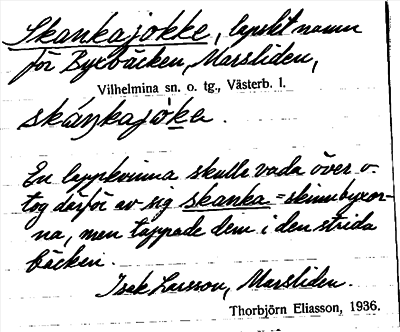 Skankajokke, lapskt namn
för Byxbäcken, Marsliden,
Vilhelmina sn. o. tg., Västerb. l.
skáŋkajò̀ka.
En lappkvinna skulle vada över o.
tog därför av sig skanka = skinnbyxor-
na, men tappade dem i den strida
bäcken.
Isak Larsson, Marsliden.
Thorbjörn Eliasson, 1936.